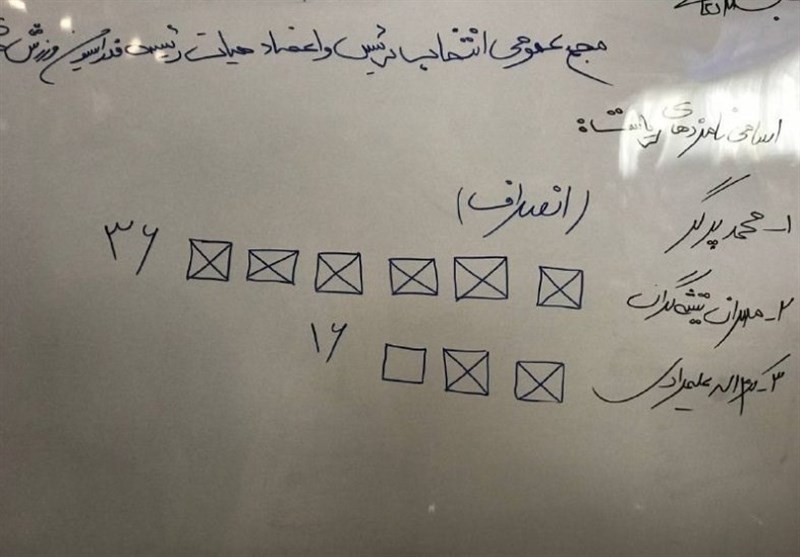 مجمع عمومی انتخاب رئیس و اعضاء هیات رئیسه فدراسیون ورزش
اسامی نامزدهای ریاست:
۱- محمد پرگر (انصراف)
۲- مهران تیشه‌گران ۳۶
۳- کرم اله علیمرادی ۱۶